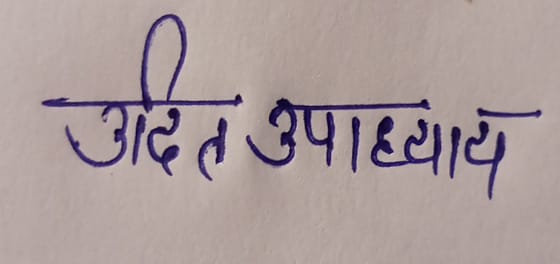 उदित उपाध्याय